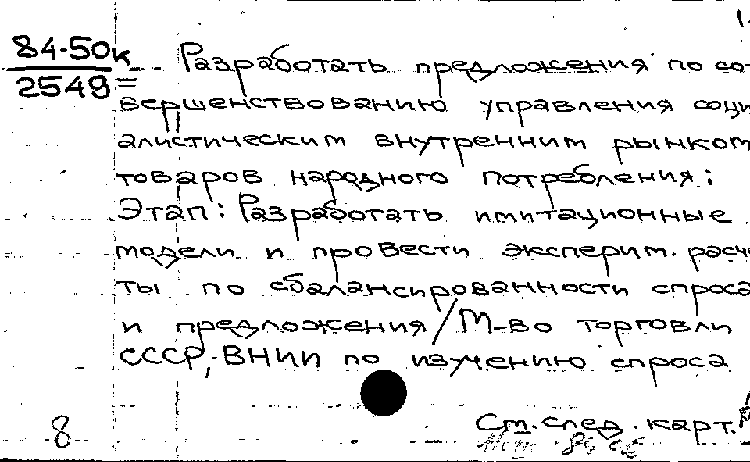 84-50к Разработать предложения по со-
2549= вершенствованию управления соци
алистическим внутренним рынком
товаров народного потребления;
Этап: Разработать имитационные
модели и провести эксперим. расче
ты по сбалансированности спроса
и предложения/М-во торговли
СССР, ВНИИ по изучению спроса
8 См. след. карт.